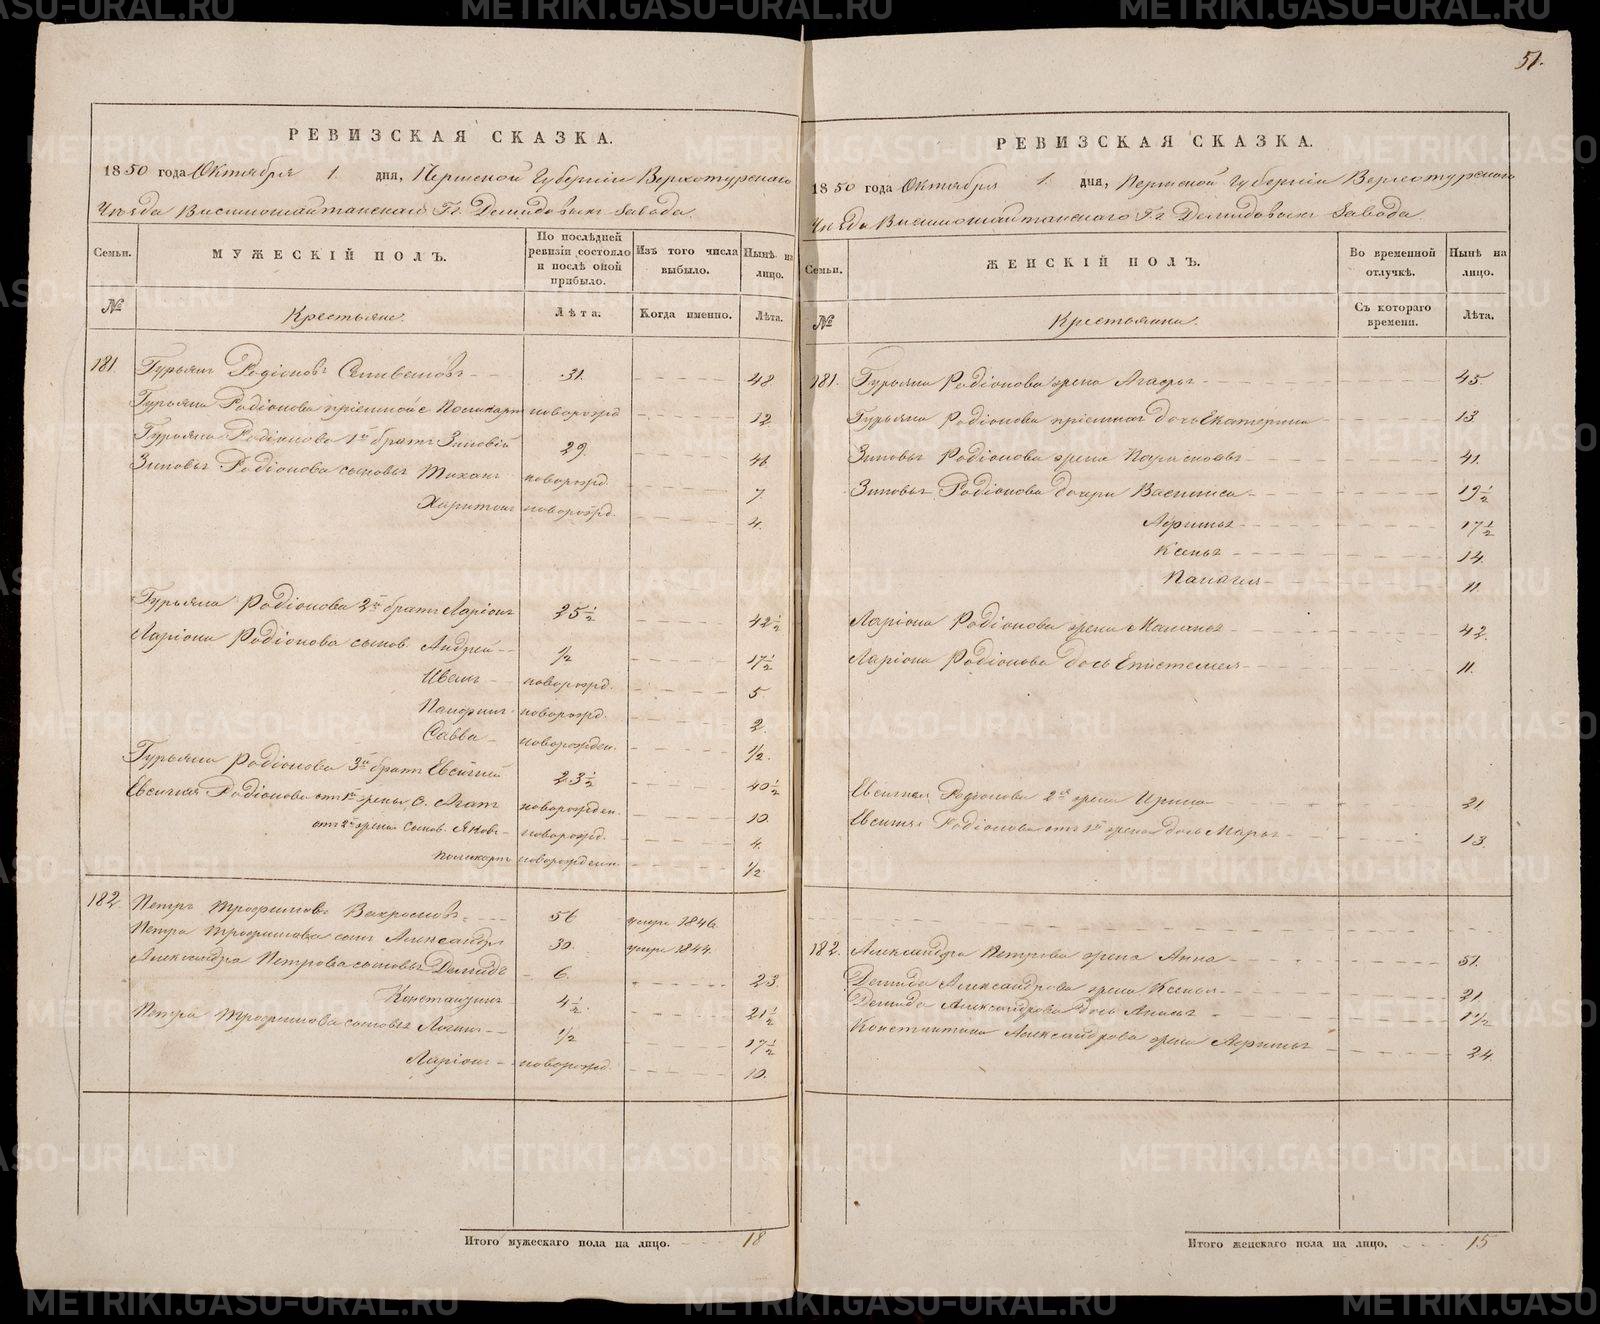 51.
РЕВИЗСКАЯ СКАЗКА.
1850 года Октября 1. дня, Пермской Губерніи Верхотурскаго
Уѣзда Висимошайтанскаго Гг. Демидовыхъ Завода.
Семьи.
МУЖЕСКІЙ ПОЛЪ.
По послѣдней ревизіи состояло и послѣ оной прибыло.
Изъ того числа выбыло.
Нынѣ на лицо.
№
Крестьяне.
Лѣта.
Когда именно.
Лѣта.
181. Гурьянъ Родіоновъ Селивестовъ 31. 48.
Гурьяна Родіонова пріемной с. Поликарпъ новорожд. 12.
Гурьяна Родіонова 1й братъ Зиновій 29. 46.
Зиновья Родіонова сыновья новорожд. 7.
Харитонъ новорожд. 4.
Гурьяна Родіонова 2й братъ Ларіонъ 25 1/2 42 1/2
Ларіона Родіонова сынов. Андрей 1/2 17 1/2
Иванъ новорожд. 5.
Панфилъ новорожд. 2.
Савва новорожден. 1/2.
Гурьяна Родіонова 3й братъ Евсигней 23 1/2 40 1/2
Евсигнея Родіонова отъ 1й жены с. Агапъ новорожден. 10.
отъ 2й жены сынов. Яковъ новорожд. 4.
Поликарпъ новорожденн. 1/2
182. Петръ Трофимовъ Вахромовъ 56 умре 1846
Петра Трофимова сынъ Александръ 39. умре 1844
Александра Петрова сыновья Демидъ 6. 23.
Константинъ 4 1/2. 21 1/2
Петра Трофимова сыновья Логинъ 1/2 17 1/2
Ларіонъ новорожд. 10.
Итого мужескаго пола на лицо. 18
РЕВИЗСКАЯ СКАЗКА.
1850 года Октября 1. дня, Пермской Губерніи Верхотурскаго
Уѣзда Висимошайтанскаго Гг. Демидовыхъ Завода.
Семьи.
ЖЕНСКІЙ ПОЛЪ.
Во временной отлучкѣ.
Нынѣ на лицо.
№
Крестьянки.
Съ котораго времени.
Лѣта.
181. Гурьяна Родіонова жена Агафья 45.
Гурьяна Родіонова пріемная дочь Екатерина 13
Зиновья Родіонова жена Парасковья 41.
Зиновья Родіонова дочери Василиса 19 1/2
Афимья 17 1/2
Ксенья 14.
Палагея 11.
Ларіона Родіонова жена Маланья 42.
Ларіона Родіонова дочь Епистемея 11.
Евсигнея Родіонова 2я жена Ирина 21
Евсигнея Родіонова отъ 1й жены дочь Марья 13.
182. Александра Петрова жена Анна 51.
Демида Александрова жена Ксенья 21
Демида Александрова дочь 1 1/2
Константина Александрова жена Афимья 24.
Итого женскаго пола на лицо. 15
METRIKI.GASO-URAL.RU